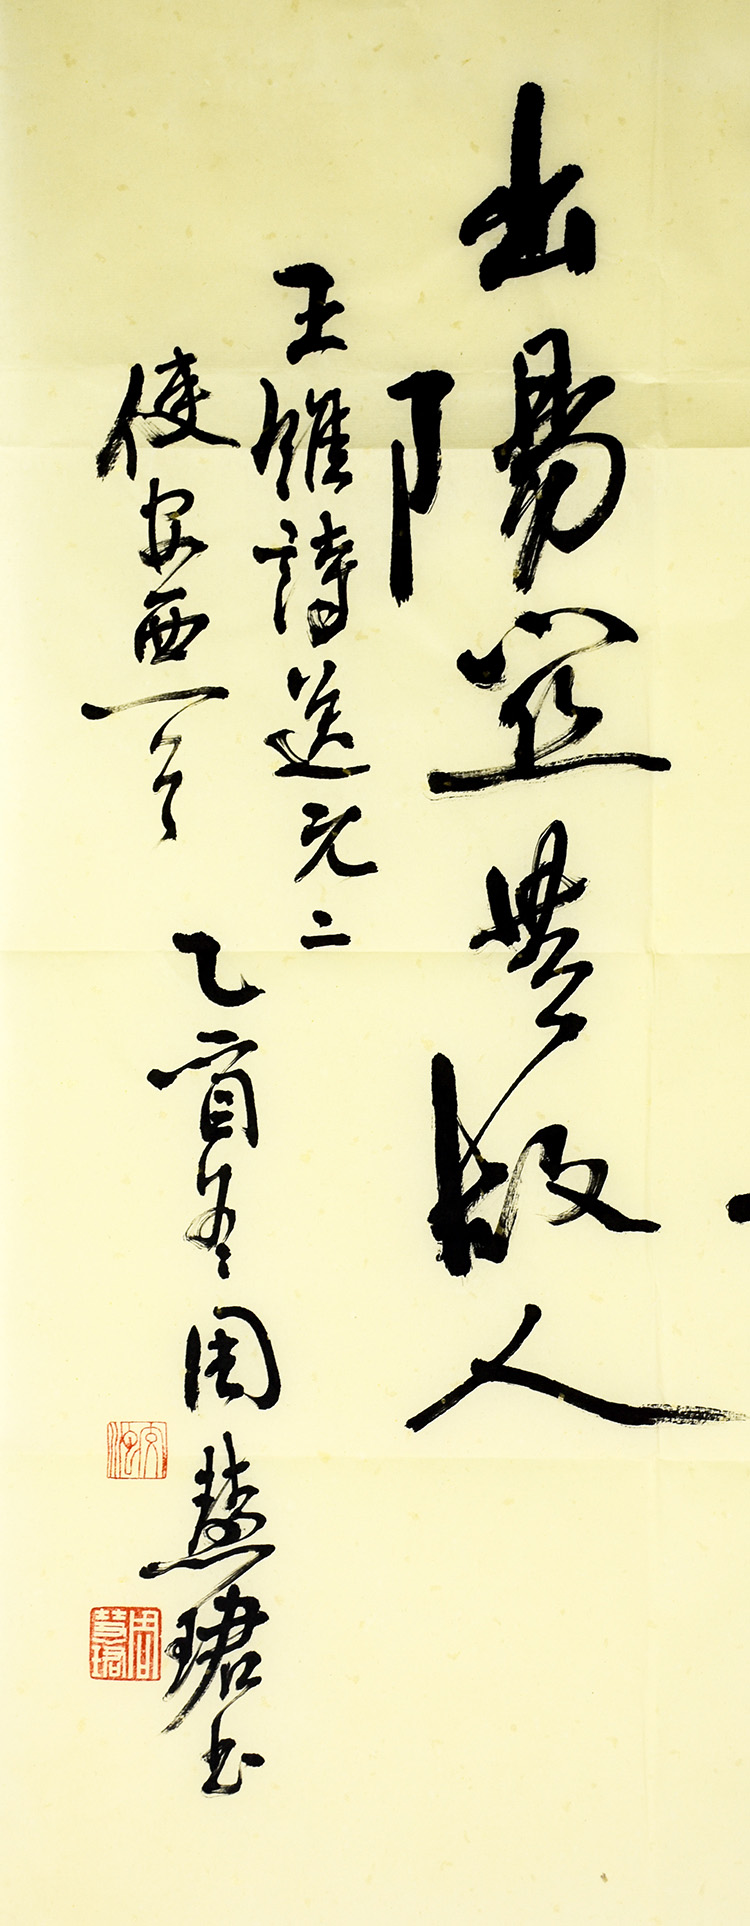 出陽關無故人
王維詩送元二
使安西一首
乙酉冬周慧珺書
周慧珺